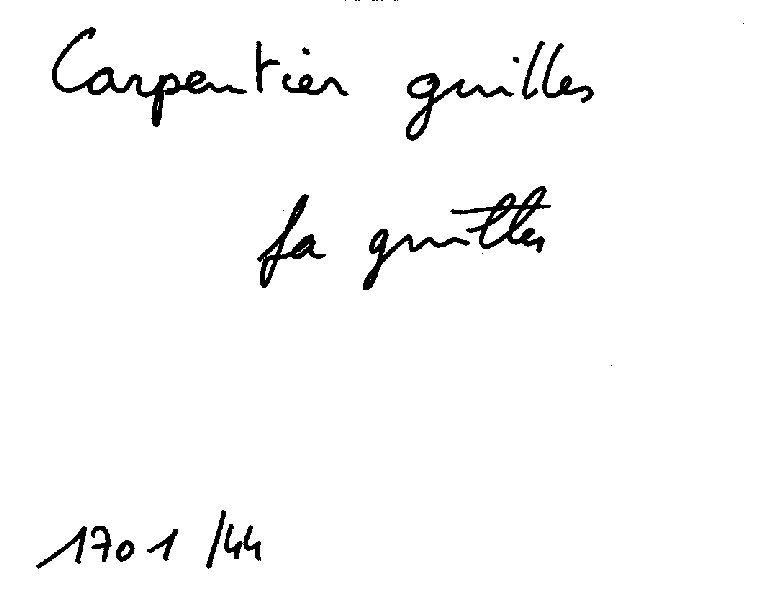 Carpentier guilles
fa guilles
1701/44